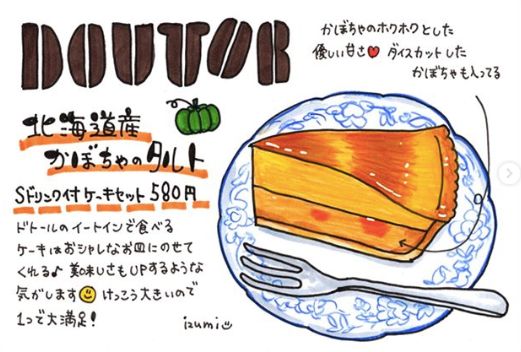 DOUTOR
かぼちゃのホクホクとした
優しい甘さ❤ ダイスカットした
かぼちゃも入ってる
北海道産
かぼちゃのタルト
Sドリンク付ケーキセット 580円
ドトールのイートインで食べる
ケーキはオシャレなお皿にのせて
くれる♪ 美味しさもUPするような
気がします😊 けっこう大きいので
1つで大満足!
izumi